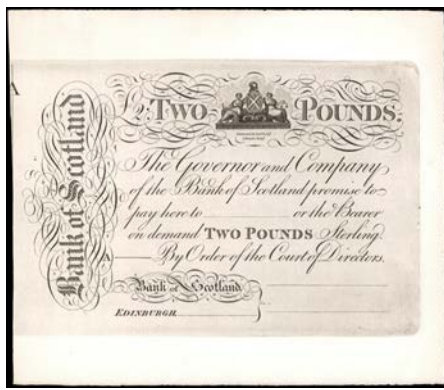 Bank of Scotland
£2. TWO POUNDS.
The Governor and Company
of the Bank of Scotland promise to
pay here to or the Bearer
on demand TWO POUNDS Sterling.
A By Order of the Court of Directors.
Bank of Scotland
EDINBURGH